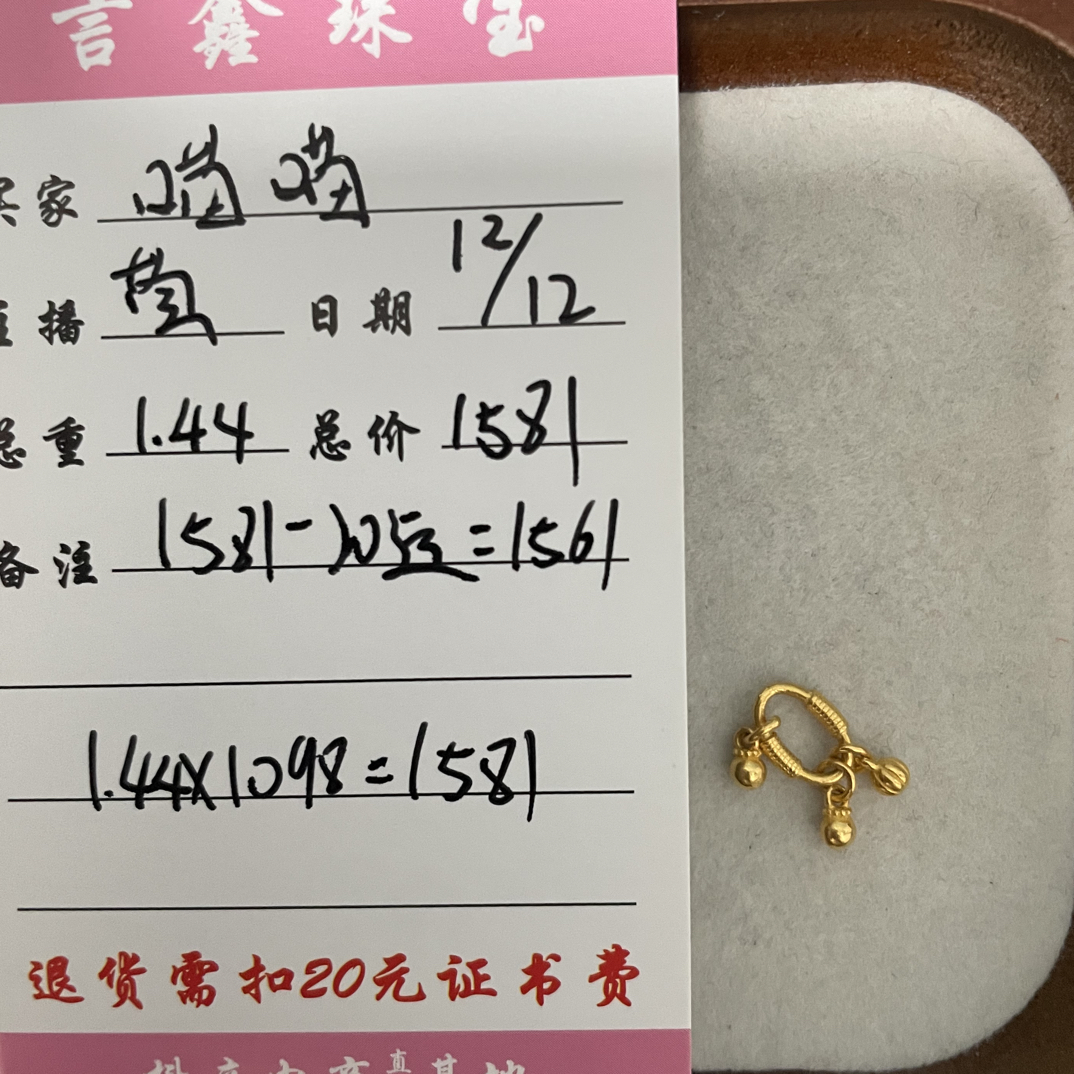 言鑫珠宝
买家 喵喵
主播 萱 日期 12/12
总重 1.44 总价 1581
备注 1581-20 = 1561
1.44×1098=1581
退货需扣20元证书费